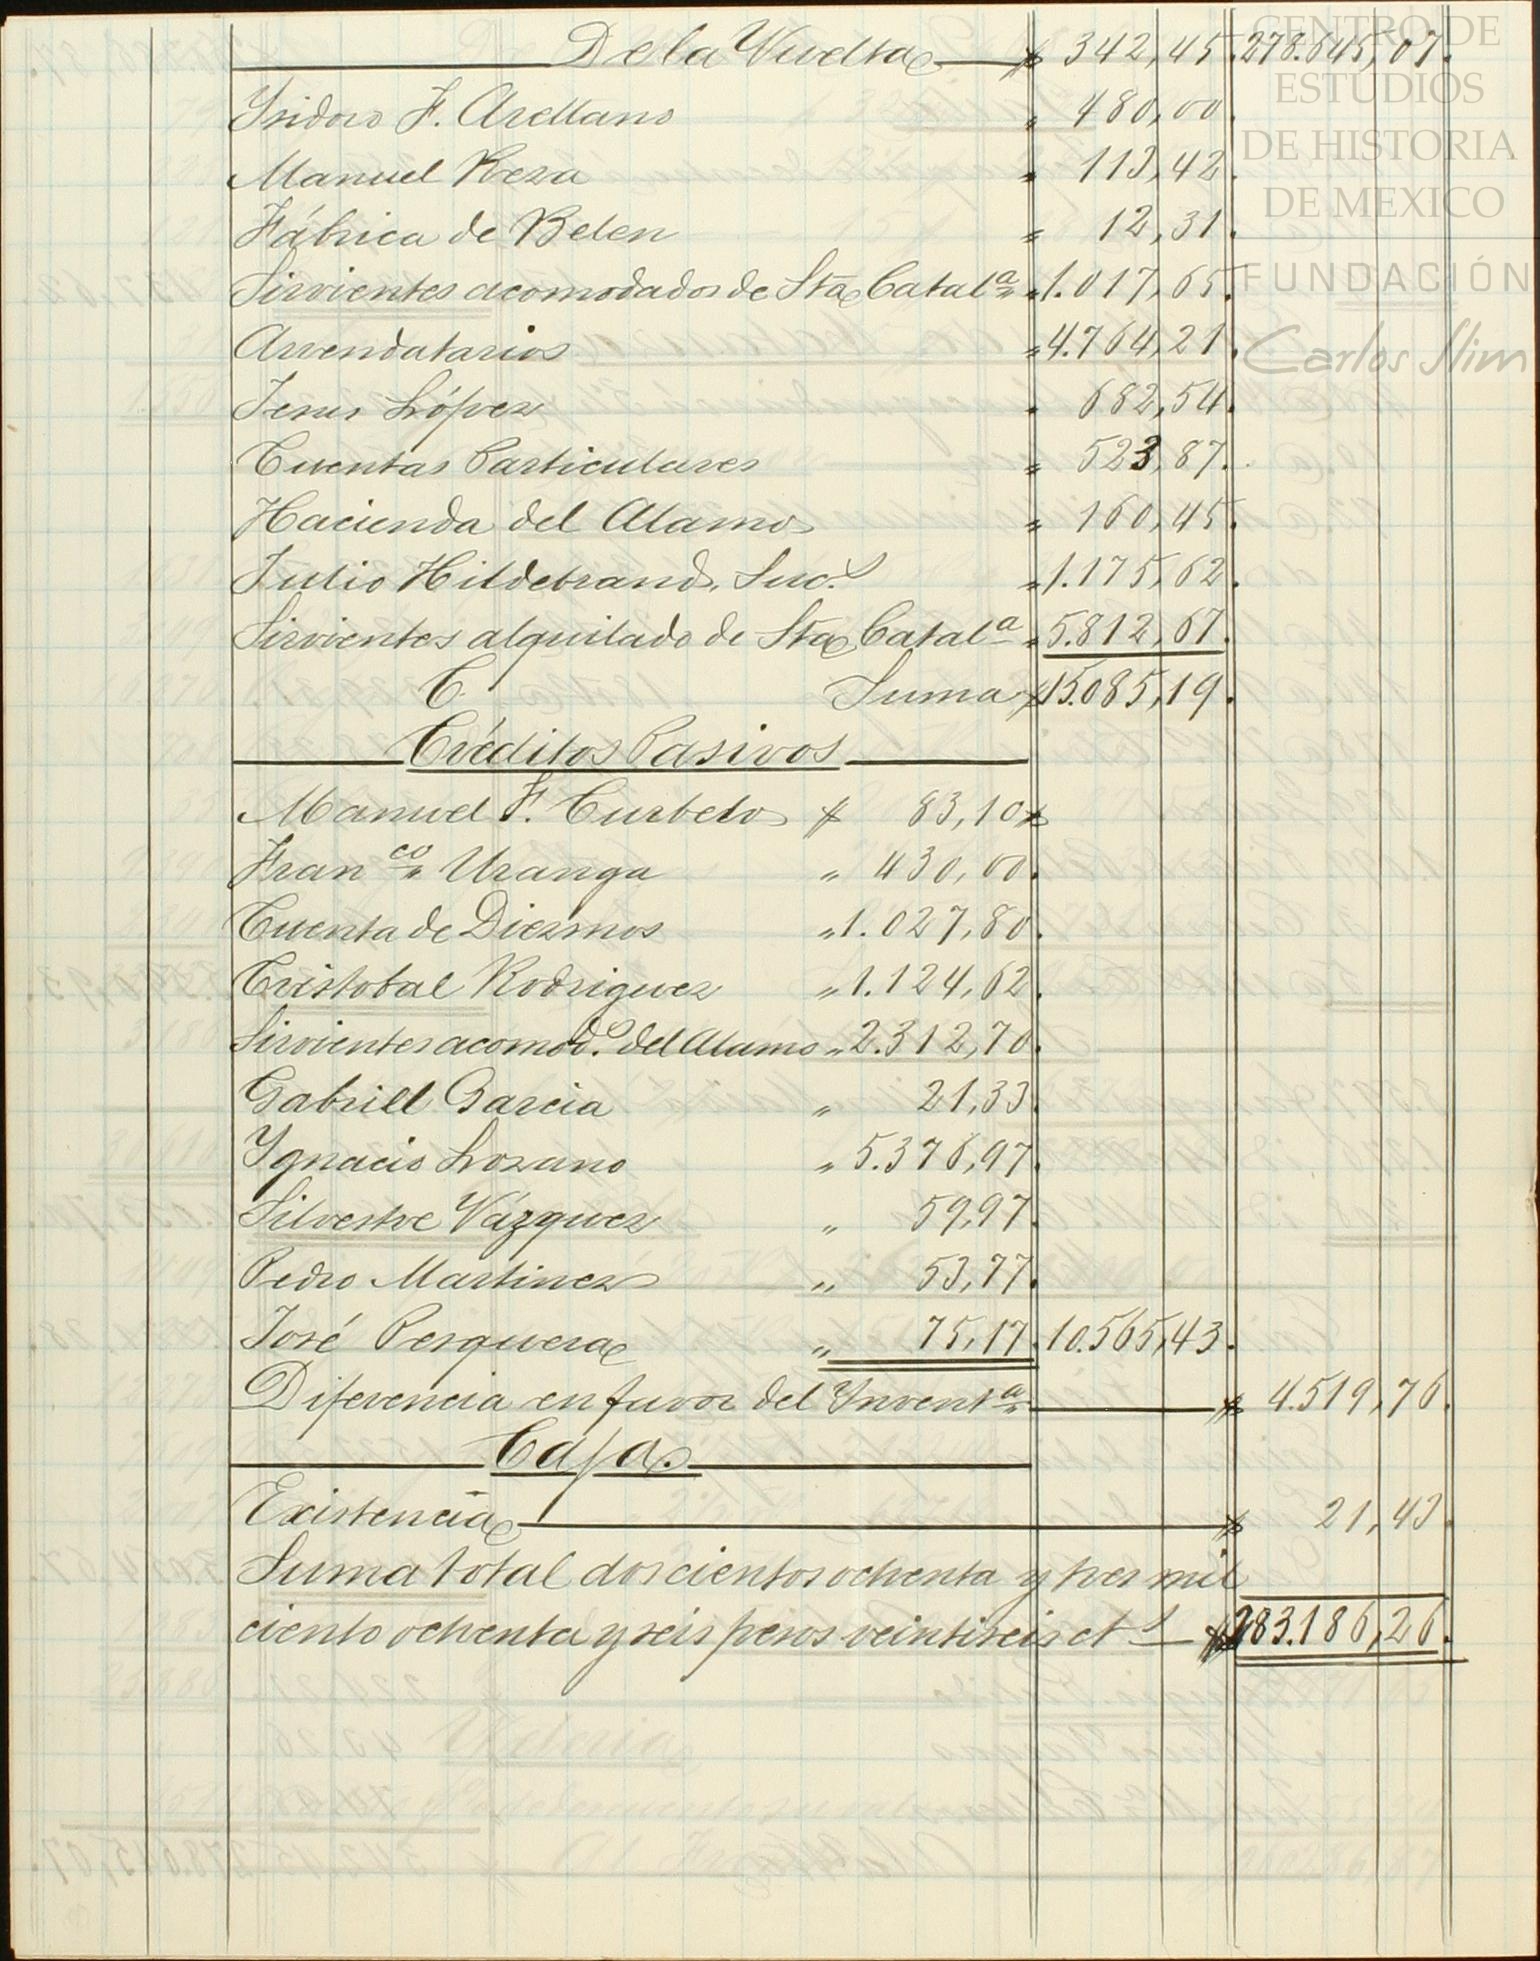 De la Vuelta $ 342,45. 278.645,07.
Isidoro F. Arellano " 480,00.
Manuel Reza " 113,42.
Fábrica de Belen " 12,31.
Sirvientes acomodados de Sta Catalª " 1.017,65.
Arrendatarios " 4.764,21.
Jesus López " 682,54.
Cuentas Particulares " 523,87.
Hacienda del Alamo " 160,45.
Julio Hildebrand, Sucs " 1.175,62.
Sirvientes alquilado de Sta Catalª " 5.812,67.
C. Suma $ 15.085,19.
Créditos Pasivos
Manuel F. Curbelo $ 83,10 $
Franco Uranga " 430,00.
Cuenta de Diezmos " 1.027,80.
Cristobal Rodriguez " 1.124,62.
Sirvientes acomods. del Alamo " 2.312,70.
Gabriell Garcia " 21,33.
Ygnacio Lozano " 5.376,97.
Silvestre Vázquez " 59,97.
Pedro Martinez " 53,77.
José Pesquera " 75,17. 10.565,43.
Diferencia en favor del Inventª $ 4.519,76.
Caja.
Existencia $ 21,43.
Suma total doscientos ochenta y tres mil
ciento ochenta y seis pesos veintiseis cts $ 283.186,26.
CENTRO DE
ESTUDIOS
DE HISTORIA
DE MEXICO
FUNDACIÓN
Carlos Slim